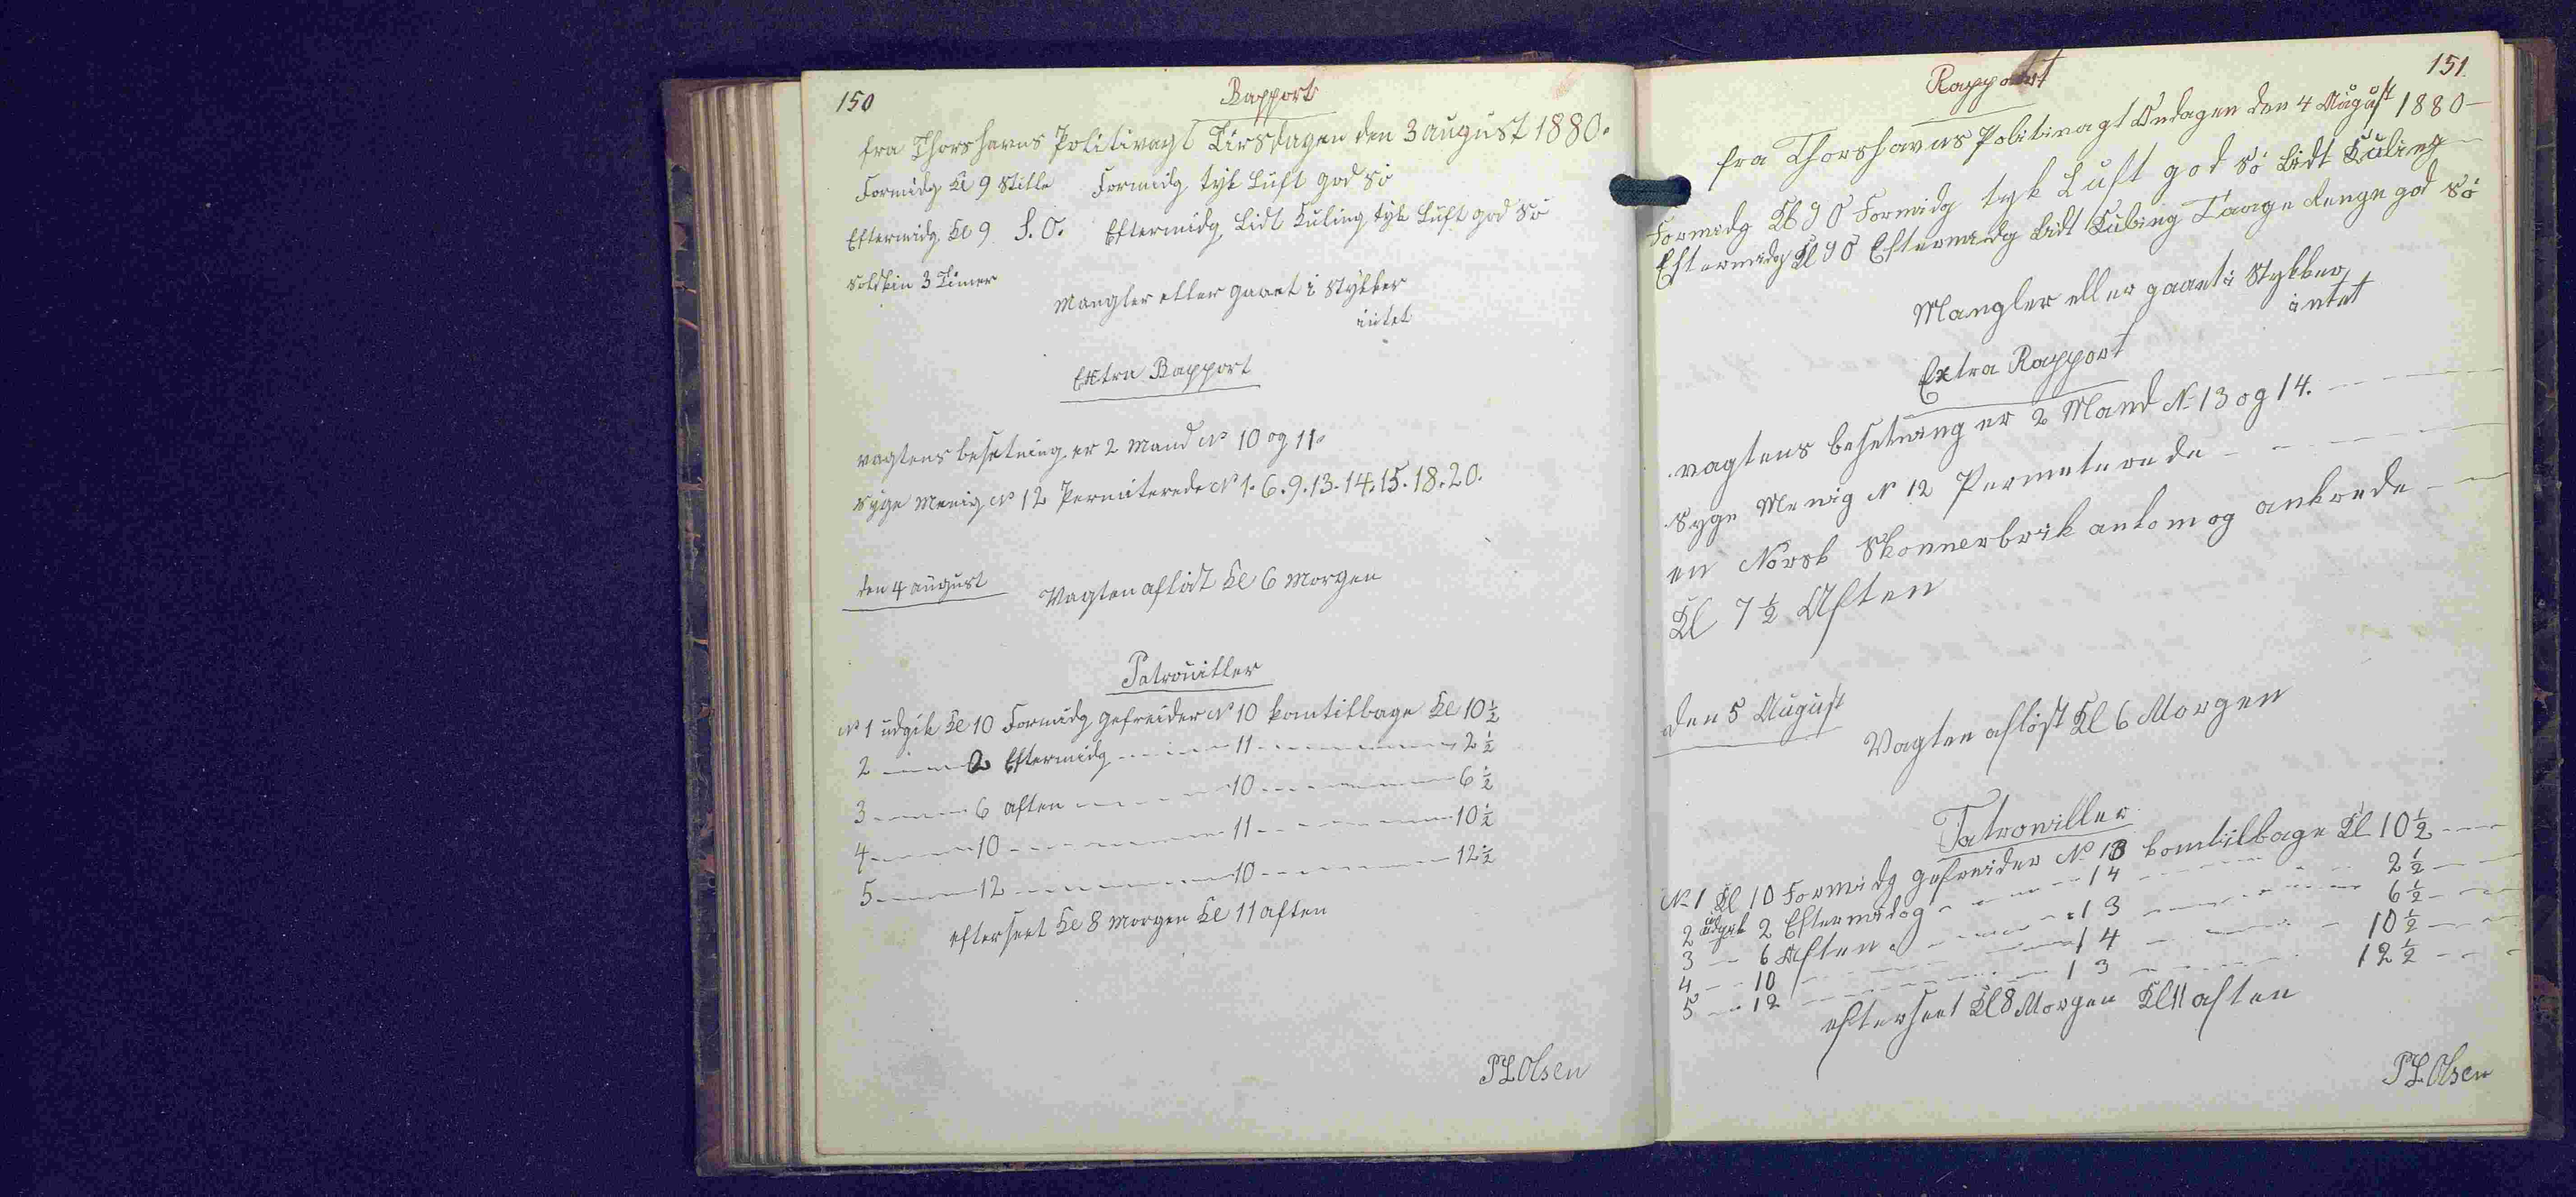 150
Rapport
fra Thorshavns Politivagt Tirsdagen den 3 august 1880.
Formidg Kl 9 Stille Formidg tyk Luft god Sö
Eftermidg Kl 9 S.O. Eftermidg Lidt Kuling tyk Luft god Sö
Solskin 3 Timer
Mangler eller gaaet i Stykker
intet
Extra Rapport
vagtens besetning er 2 Mand No 10 og 11.
syge Menig No 12 Permiterede No 1. 6. 9. 13. 14. 15. 18. 20.
den 4 august Vagten aflöst Kl 6 Morgen
Patrouiller
No 1 udgik Kl 10 Formidg gefreider No 10 kom tilbage Kl 10 ½
2 2 Eftermidg 11 2 ½
3 6 aften 10 6 ½
4 10 11 10 ½
5 12 10 12 ½
efterseet Kl 8 Morgen Kl 11 aften
P L Olsen
151.
Rapport
fra Thorshavns Politivagt Ondagen den 4 August 1880
Formidg Kl 9 O Formidg tyk Luft god Sö Lidt Kuling
Eftermidg Kl 9 O Eftermidg Lidt Kuling Taage Renge god Sö
Mangler eller gaaet i Stykker
intet
Extra Rapport
vagtens besetning er 2 Mand No 13 og 14.
Syge Menig N 12 Permeterede
en Norsk Skonnerbrik ankom og ankrede
Kl 7 ½ Aften
den 5 August
Vagten aflöst Kl 6 Morgen
Patrouiller
No 1 Kl 10 Formidg gefreider No 13 kom tilbage Kl 10 ½
2 udgik 2 Eftermidag 14 2 ½
3 6 Aften 13 6 ½
4 10 14 10 ½
5 12 13 12 ½
efterseet Kl 8 Morgen Kl 11 aften
P L Olsen